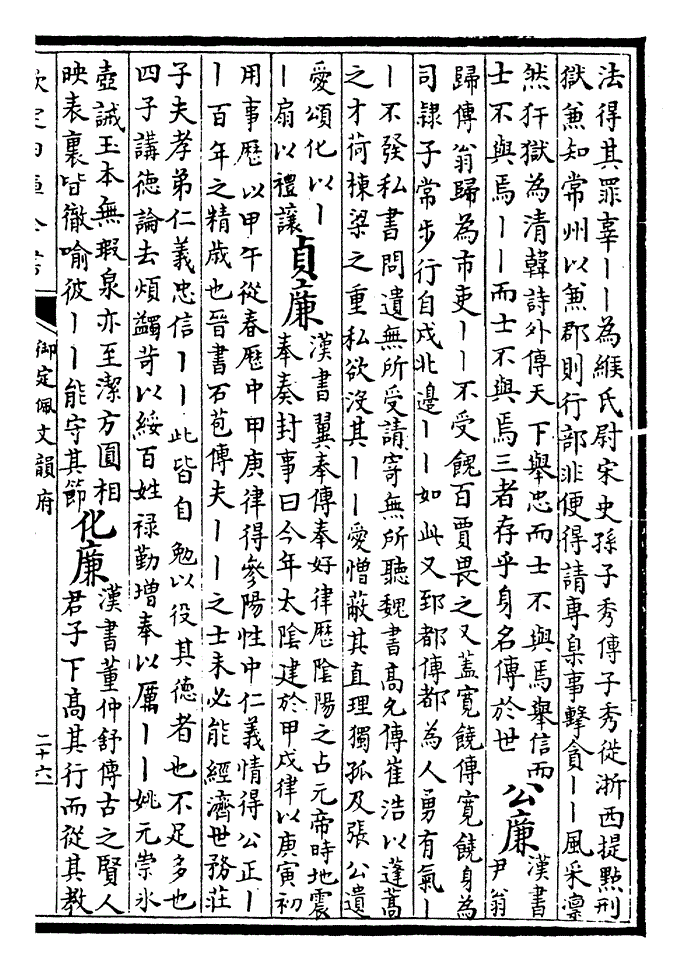 法得其罪辜丨丨為緱氏尉宋史孫子秀傳子秀從浙西提點刑
獄兼知常州以兼郡則行部非便得請専臬事擊貪丨丨風采凛
然犴獄為清韓詩外傳天下舉忠而士不與焉舉信而
士不與焉丨丨而士不與焉三者存乎身名傳於世
公廉
漢書
尹翁
歸傳翁歸為市吏丨丨不受餽百賈畏之又蓋寛饒傳寛饒身為
司隸子常步行自戍北邉丨丨如此又郅都傳都為人勇有氣丨
丨不發私書問遺無所受請寄無所聽魏書高允傳崔浩以蓬蒿
之才荷棟梁之重私欲沒其丨丨愛憎蔽其直理獨孤及張公遺
愛頌化以丨
丨扇以禮讓
貞廉
漢書翼奉傳奉好律歴隂陽之占元帝時地震
奉奏封事曰今年太陰建於甲戌律以庚寅初
用事歴以甲午從春歴中甲庚律得參陽性中仁義情得公正丨
丨百年之精歳也晉書石苞傳夫丨丨之士未必能經濟世務莊
子夫孝弟仁義忠信丨丨此皆自勉以役其德者也不足多也
四子講德論去煩蠲苛以綏百姓禄勤増奉以厲丨丨姚元崇氷
壺誡玉本無瑕泉亦至潔方圓相
映表裏皆徹喻彼丨丨能守其節
化廉
漢書董仲舒傳古之賢人
君子下髙其行而從其教
欽定四庫全書
御定佩文韻府
二十六